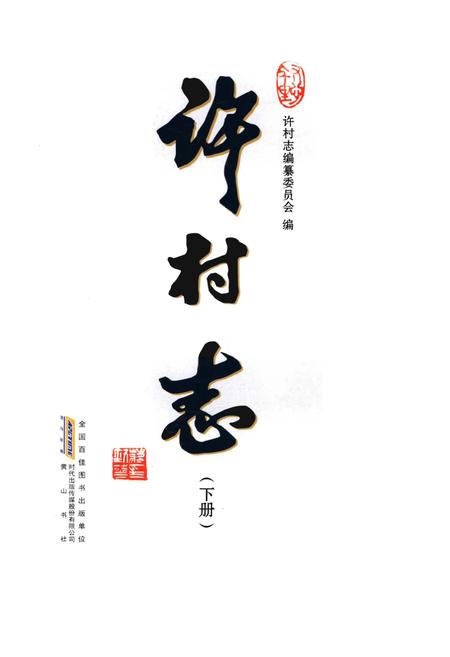 许村志编纂委员会 编
许村志
（下册）
全国百佳图书出版单位
时代出版传媒股份有限公司
黄山书社